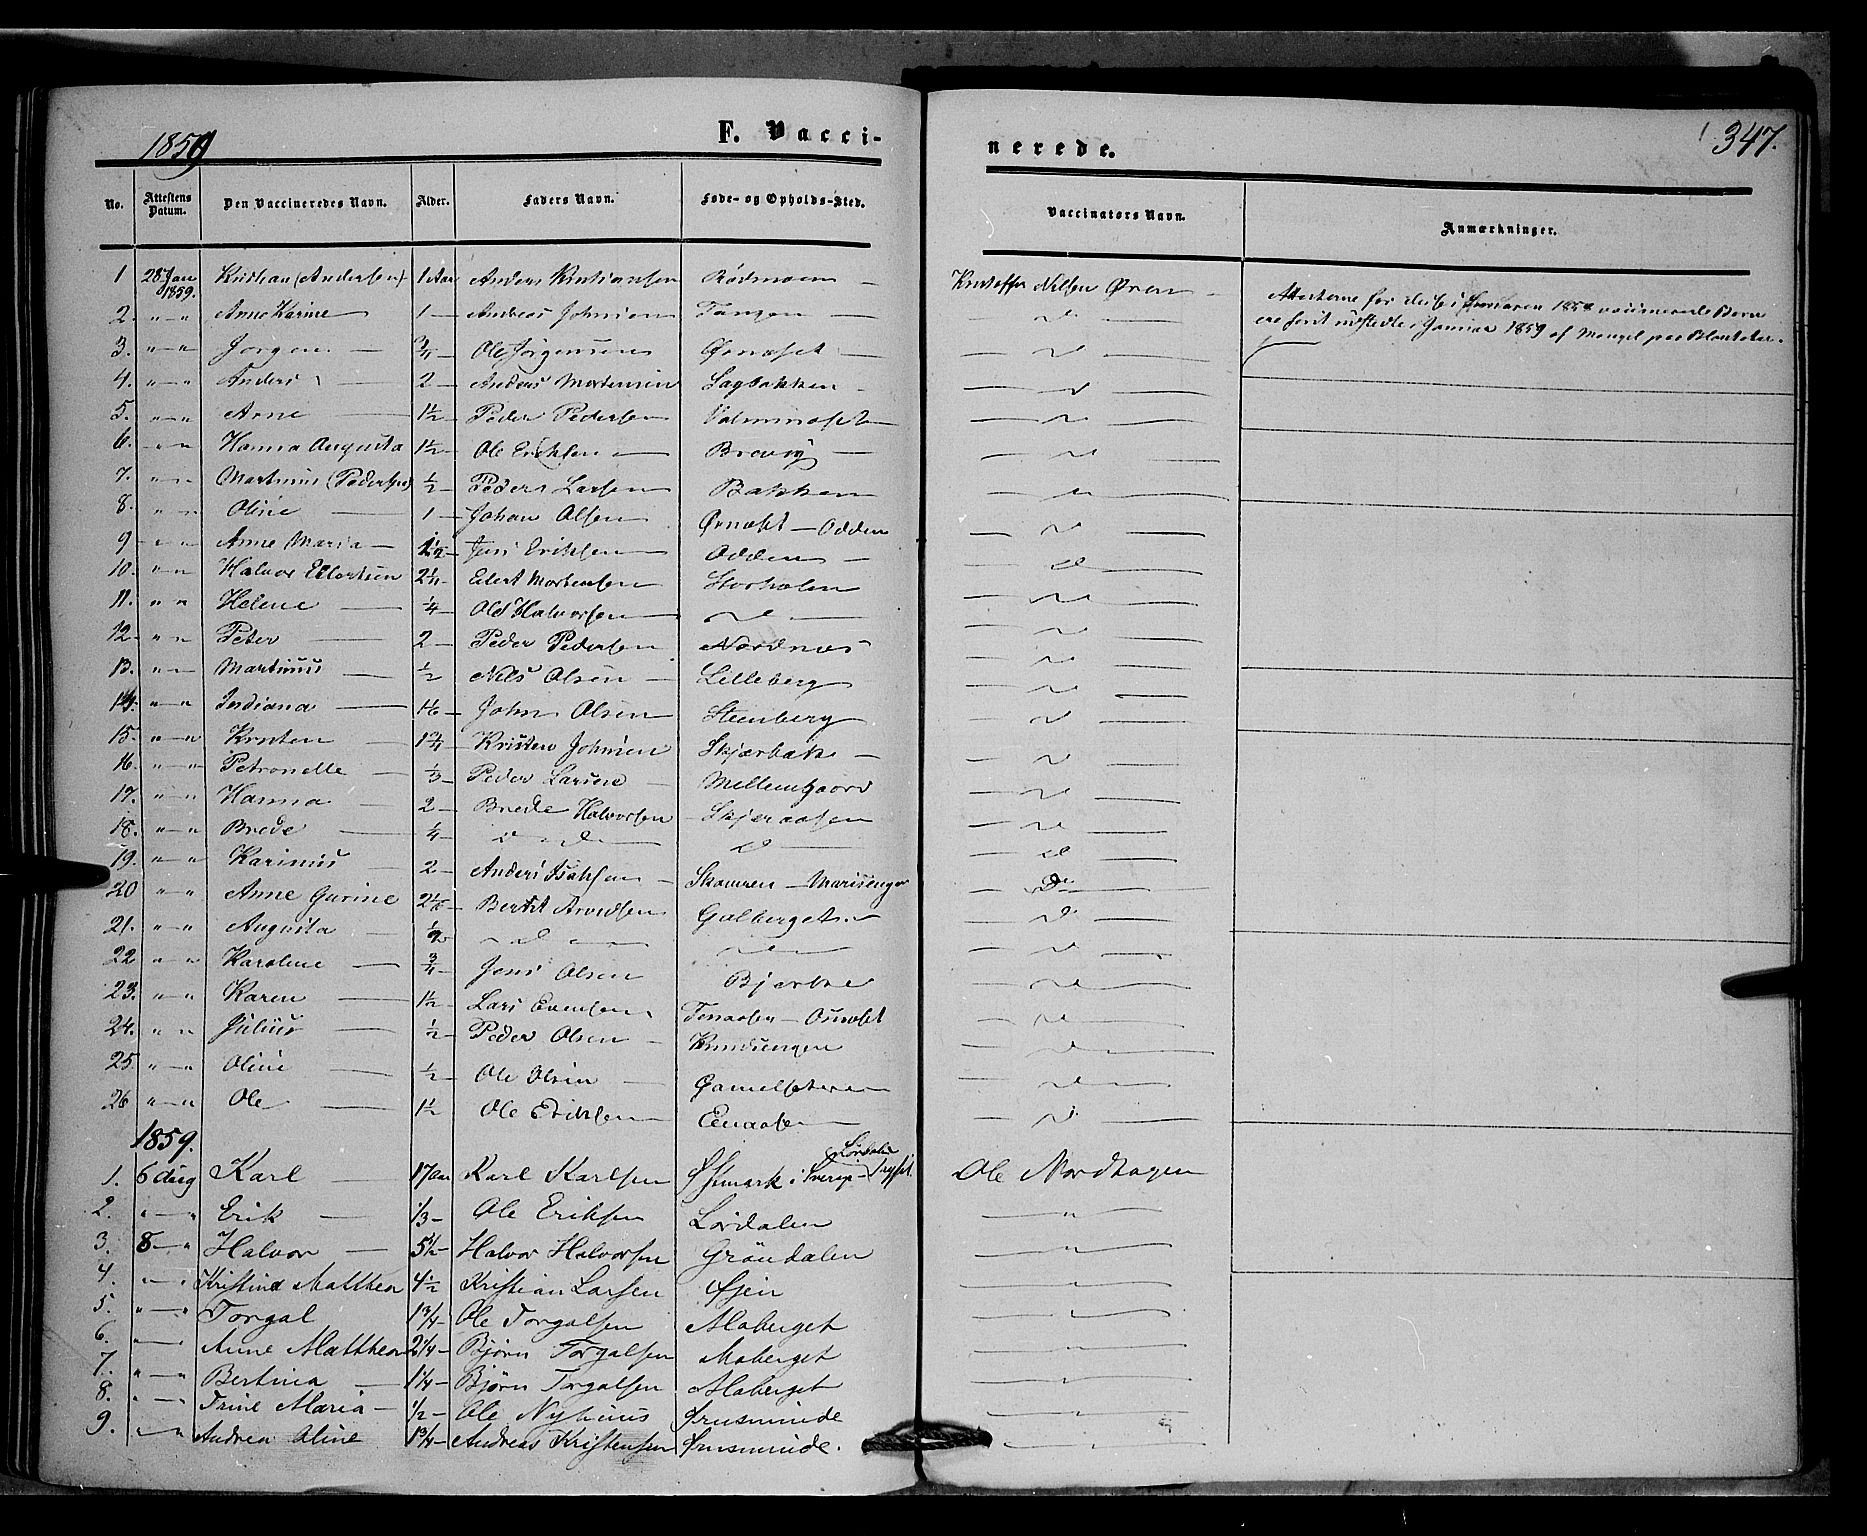 1859
F. Vacci-
nerede.
347.
No. Attestens Datum. Den Vaccineredes Navn. Alder. Faders Navn. Føde- og Opholds-Sted. Vaccinators Navn. Anmærkninger.
1 28 Jan 1859. Kristian (Andersen) 1 Aar Anders Kristiansen Rødmoen Kristoffer Nilsen Øren
Attesterne for de i 1858 vaccinerede Børn
ere først udstedte i Januar 1859 af Mangel paa Blanketter.
2. " — " Anne Karine 1 — Andreas Johnsen Tangen — d —
3. " — " Jørgen — 3/4 Ole Jørgensen Ørnæset — d —
4. " — " Anders — 2 — Anders Mortensen Sagbakken — d —
5. " — " Arne — 1½ — Peder Pedersen — d —
6. " — " Hanna Augusta 1½ — Ole Eriksen — Brovig — d —
7. " — " Martinus (Pedersen) ½ — Peder Larsen Bakken — d —
8. " — " Oline — 1 — Johan Olsen Ørnæset — Odden — d —
9 " — " Anne Maria — 1½ — Jens Eriksen Odden — d —
10. " — " Halvor Eilertsen 2¼ — Eilert Mortensen Storholen — d —
11. " " Helene — ¼ — Ole Halvorsen — d — — d —
12. " — " Peter — 2 — Peder Pedersen Nordnæs — d —
13. " — " Martinus — ½ Nils Olsen — Lilleberg — d —
14. " — " Indiana — 1⅙ — John Olsen Steenberg — d —
15. " — " Kristen — 1¾ — Kristen Johnsen Skjærbæk — d —
16. " — " Petronelle — ⅓ — Peder Larsen — Mellemgaard — d —
17. " — " Hanna — 2 — Brede Halvorsen Skjæraasen — d —
18. " — " Brede — ¼ — d — d — d — d —
19. " — " Karinus — 2 — Anders Isaksen — Skaaren — Marisenger — d —
20 " — " Anne Gurine Beret Arvidsen Galberget — Do —
21. " — " Augusta — ½ — d — — d — — d —
22 " — " Karoline — ¾ — Jens Olsen Bjærke — d —
23. " — " Karen — 1½ — Lars Evensen — Osnæset — d —
24. " — " Julius — ½ — Peder Olsen — — d —
25. " — " Oline — ½ — Ole Olsen — Gamelsæteren — d —
26 " — " Ole — 1½ Ole Eriksen Eenaasen — d —
1859.
1. 6 Aug Karl — 17 Aar Karl Karlsen Østmark i Sverige — Lørdalen Trysil Ole Nordhagen
2. " — " Erik — 1/3 — Ole Eriksen Lørdalen "
3. 8 — " Halvor — 5½ — Halvor Halvorsen Gröndalen "
4. " — " Kristina Matthea 4½ Kristian Larsen "
5. " — " Torgal 1¾ — Ole Torgalsen Moberget "
6. " — " Anne Matthea 2¼ — Bjørn Torgalsen Moberget "
7. " — " Bertina — 1¼ — Bjørn Torgalsen Moberget "
8. " — " Trine Maria — ½ — Ole Nyhuus "
9. " — " Andrea Oline 1¾ — Andreas Kristensen "